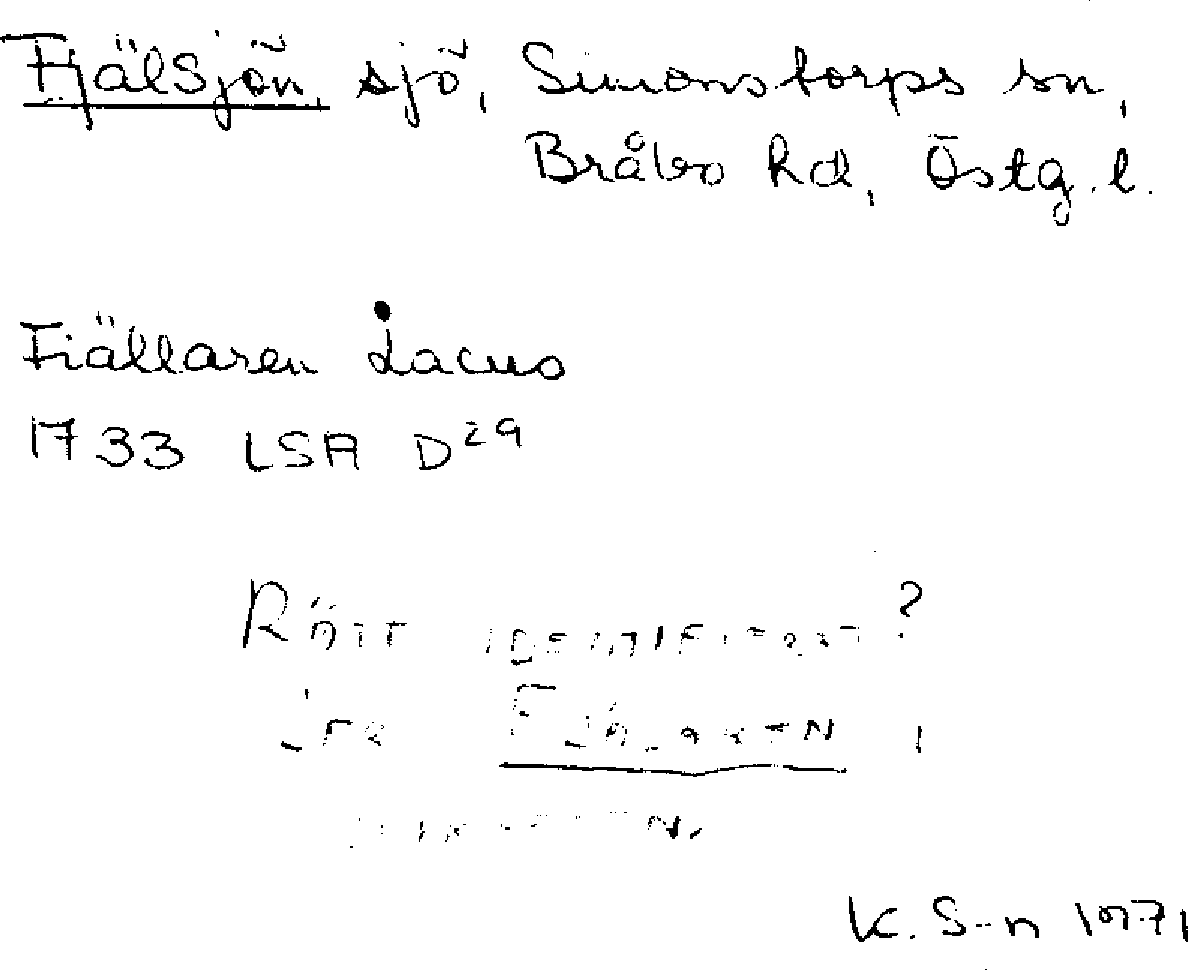 Fjälsjön, sjö, Simonstorps sn,
Bråbo hd, Östg. l.
Fiällaren Lacus
1733 LSA D29
Rätt identifierat?
Jfr Fjälaren,
K. S-n 1971